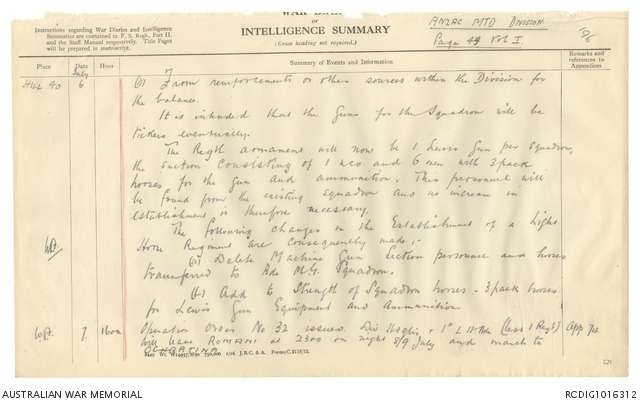 WAR DIARY
OR
INTELLIGENCE SUMMARY
(Erase heading not required.)
ANZAC MTD DIVISION
Page 49 Vol I.
Instructions regarding War Diaries and Intelligence
Summaries are contained in F. S. Regs., Part II.
and the Staff Manual respectively. Title Pages
will be prepared in manuscript.
Place
Date
Hour
Summary of Events and Information
Remarks and
references to
Appendices
July
Hill 40
6
(c) From reinforcements or other sources within the Division for
the balance.
It is intended that the Guns for the Squadron will be
Vickers eventually.
The Regtl armament will now be 1 Lewis Gun per Squadron,
the section consisting of 1 nco and 6 men with 3 pack
horses for the gun and ammunition. This personnel will
be found from the existing Squadron and no increase in
establishment is therefore necessary.
The following changes in the Establishment of a Light
Horse Regiment are consequently made:-
(a) Delete Machine Gun Section personnel and horses
transferred to Bde M.G. Squadron.
(b) Add to Strength of Squadron horses - 3 pack horses
for Lewis Gun Equipment and Ammunition
7
1600
Operation Order No 32 issued. Div Hdqrs + 1st L H Bde (less 1 Regt)
App 72
will leave ROMANI at 2300 on night 8/9 July and march to
J.B.C. & A.
AUSTRALIAN WAR MEMORIAL
RCDIG1016312